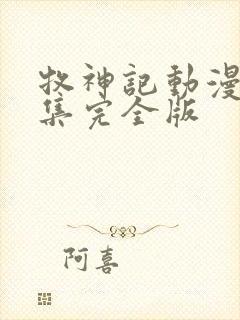 牧神記動漫
集完全版
阿喜